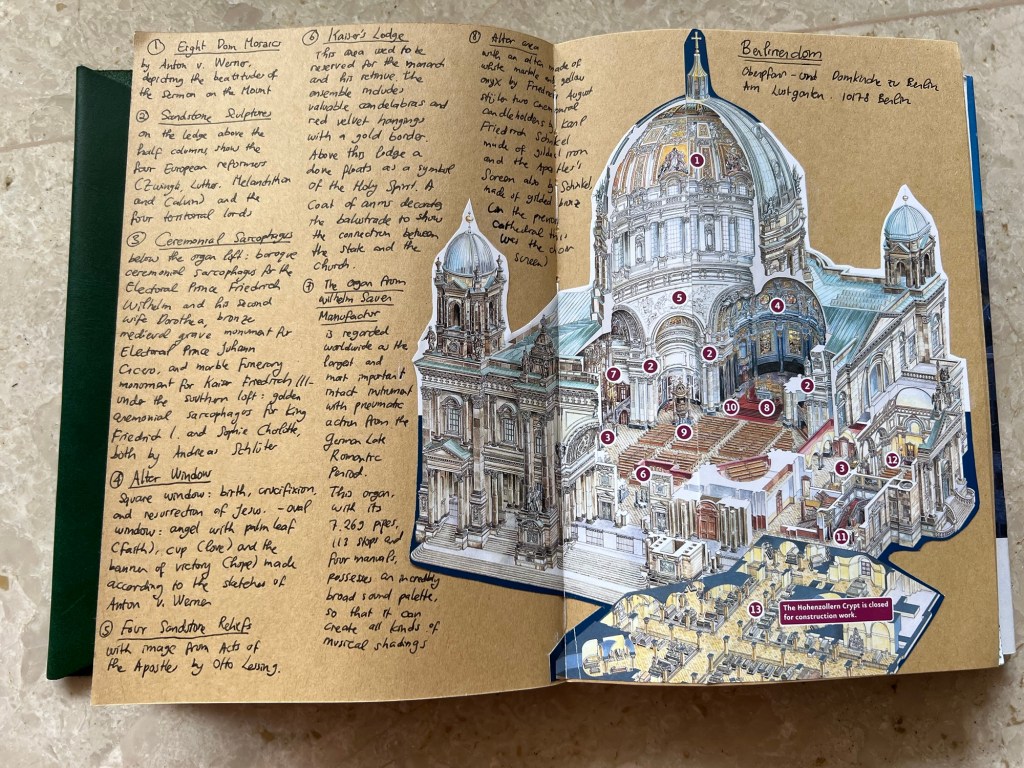 ① Eight Dom Mosaics
by Anton v. Werner,
depicting the beatitudes of
the Sermon on the Mount
② Sandstone Sculptures
on the ledge above the
half columns show the
four European reformers
(Zwingli, Luther, Melanchthon
and Calvin) and the
four territorial lords
③ Ceremonial Sarcophagus
below the organ loft: baroque
ceremonial sarcophagus for the
Electoral Prince Friedrich
Wilhelm and his second
wife Dorothea, bronze
medieval grave monument for
Electoral Prince Johann
Cicero, and marble funerary
monument for Kaiser Friedrich III -
under the southern loft: golden
ceremonial sarcophagus for King
Friedrich I. and Sophie Charlotte,
both by Andreas Schlüter
④ Alter Window
Square window: birth, crucifixion,
and resurrection of Jesus. - oval
window: angel with palm leaf
(faith), cup (love) and the
banner of victory (hope) made
according to the sketches of
Anton v. Werner
⑤ Four Sandstone Reliefs
with image from Acts of
the Apostles by Otto Lessing.
⑥ Kaiser's Lodge
This area used to be
reserved for the monarch
and his retinue. The
ensemble includes
valuable candelabras and
red velvet hangings
with a gold border.
Above this lodge a
dove floats as a symbol
of the Holy Spirit. A
Coat of arms decorates
the balustrade to show
the connection between
the state and the
church.
⑦ The organ from
Wilhelm Sauer
Manufactor
is regarded
worldwide as the
largest and
most important
intact instrument
with pneumatic
action from the
German Late
Romantic
Period.
This organ,
with its
7.269 pipes,
113 stops and
four manuals,
possesses an incredibly
broad sound palette,
so that it can
create all kinds of
musical shadings
⑧ Alter area
with an alter made of
white marble and yellow
onyx by Friedrich August
Stüler two
candleholders by Karl
Friedrich Schinkel
made of gilded iron
and the Apostle's
Screen also by Schinkel,
made of gilded bronze
(in the previous
cathedral this
was the choir
screen)
Berlinerdom
Oberpfarr- und Domkirche zu Berlin
Am Lustgarten. 10178 Berlin
1
5
4
2
2
7
2
10
8
9
3
6
3
12
11
13
The Hohenzollern Crypt is closed
for construction work.